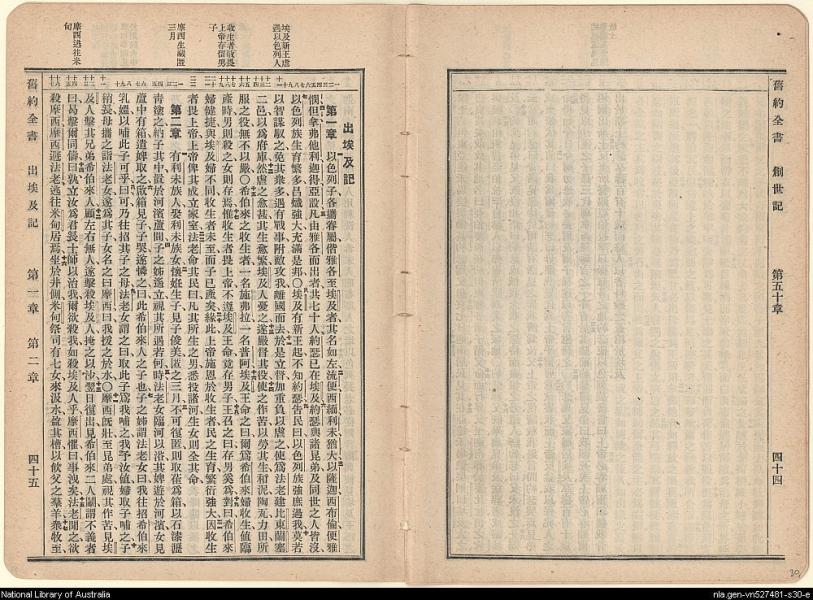 舊約全書 創世記 第五十章 四十四
埃及新王虐
遇以色列人
收生者敬畏
上帝存留男
子
摩西生藏匿
三月
摩西逃往米
甸
出埃及記
第一章 以色列子各攜眷屬偕雅各至埃及者其名如左流便西緬利未猶大以薩迦西布倫便雅
憫但拿弗他利迦得亞設凡由雅各而出者共七十人約瑟已在埃及約瑟與諸兄弟及同世之人皆沒
以色列族生育繁多昌熾強大充滿是邦○埃及有新王起不知約瑟告民曰以色列族強庶過我莫若
以智謀馭之免其衆多遇有戰事附敵攻我離國而去於是立督加重負以虐之使爲法老建比東蘭塞
二邑以爲府庫然虐之愈甚其生愈繁埃及人憂之遂嚴督其役使之作苦以勞其生和泥陶瓦力田所
服之役無不以嚴○希伯來之收生者一名施弗拉一名普阿埃及王命之曰爾爲希伯來婦收生値臨
產時男則殺之女則存焉惟收生者畏上帝不遵埃及王命竟存男子王召之曰存男奚爲對曰希伯來
婦健捷與埃及婦不同收生者未至而子已產矣緣此上帝施恩於收生者民之生育繁衍強大因收生
者畏上帝上帝俾其成立家室法老命其民曰凡其所生之男悉投諸河生女則全其命
第二章 有利未族人娶利未族女懷姙生子見子俊美匿之三月不可復匿則取萑爲箱以石漆瀝
青塗之納子其中置於河濱蘆間子之姊遙立視其所遇若何時法老女臨河以浴其婢遊於河濱女見
蘆中有箱遣婢取之啟箱見子子哭遂憐之曰此希伯來人之子也子之姊謂法老女曰我往招希伯來
乳媼以哺此子可乎曰可乃往招其子之母法老女謂之曰取此子爲我哺之我予汝値婦取子哺之子
稍長母攜之詣法老女遂爲其子女名之曰摩西曰我援之於水○摩西旣壯至兄弟處視其作苦見埃
及人擊其兄弟希伯來人顧左右無人遂擊殺埃及人掩之以沙翌日復出見希伯來二人鬬謂不義者
曰曷擊爾同儔曰孰立汝爲君長士師以治我爾欲殺我如殺埃及人乎摩西懼曰事洩矣法老聞之欲
殺摩西摩西避法老逃往米甸居焉坐於井側米甸祭司有七女來汲水盈其槽以飮父之羣羊衆牧至
舊約全書 出埃及記 第一章 第二章 四十五
National Library of Australia
nla.gen-vn527481-s30-e